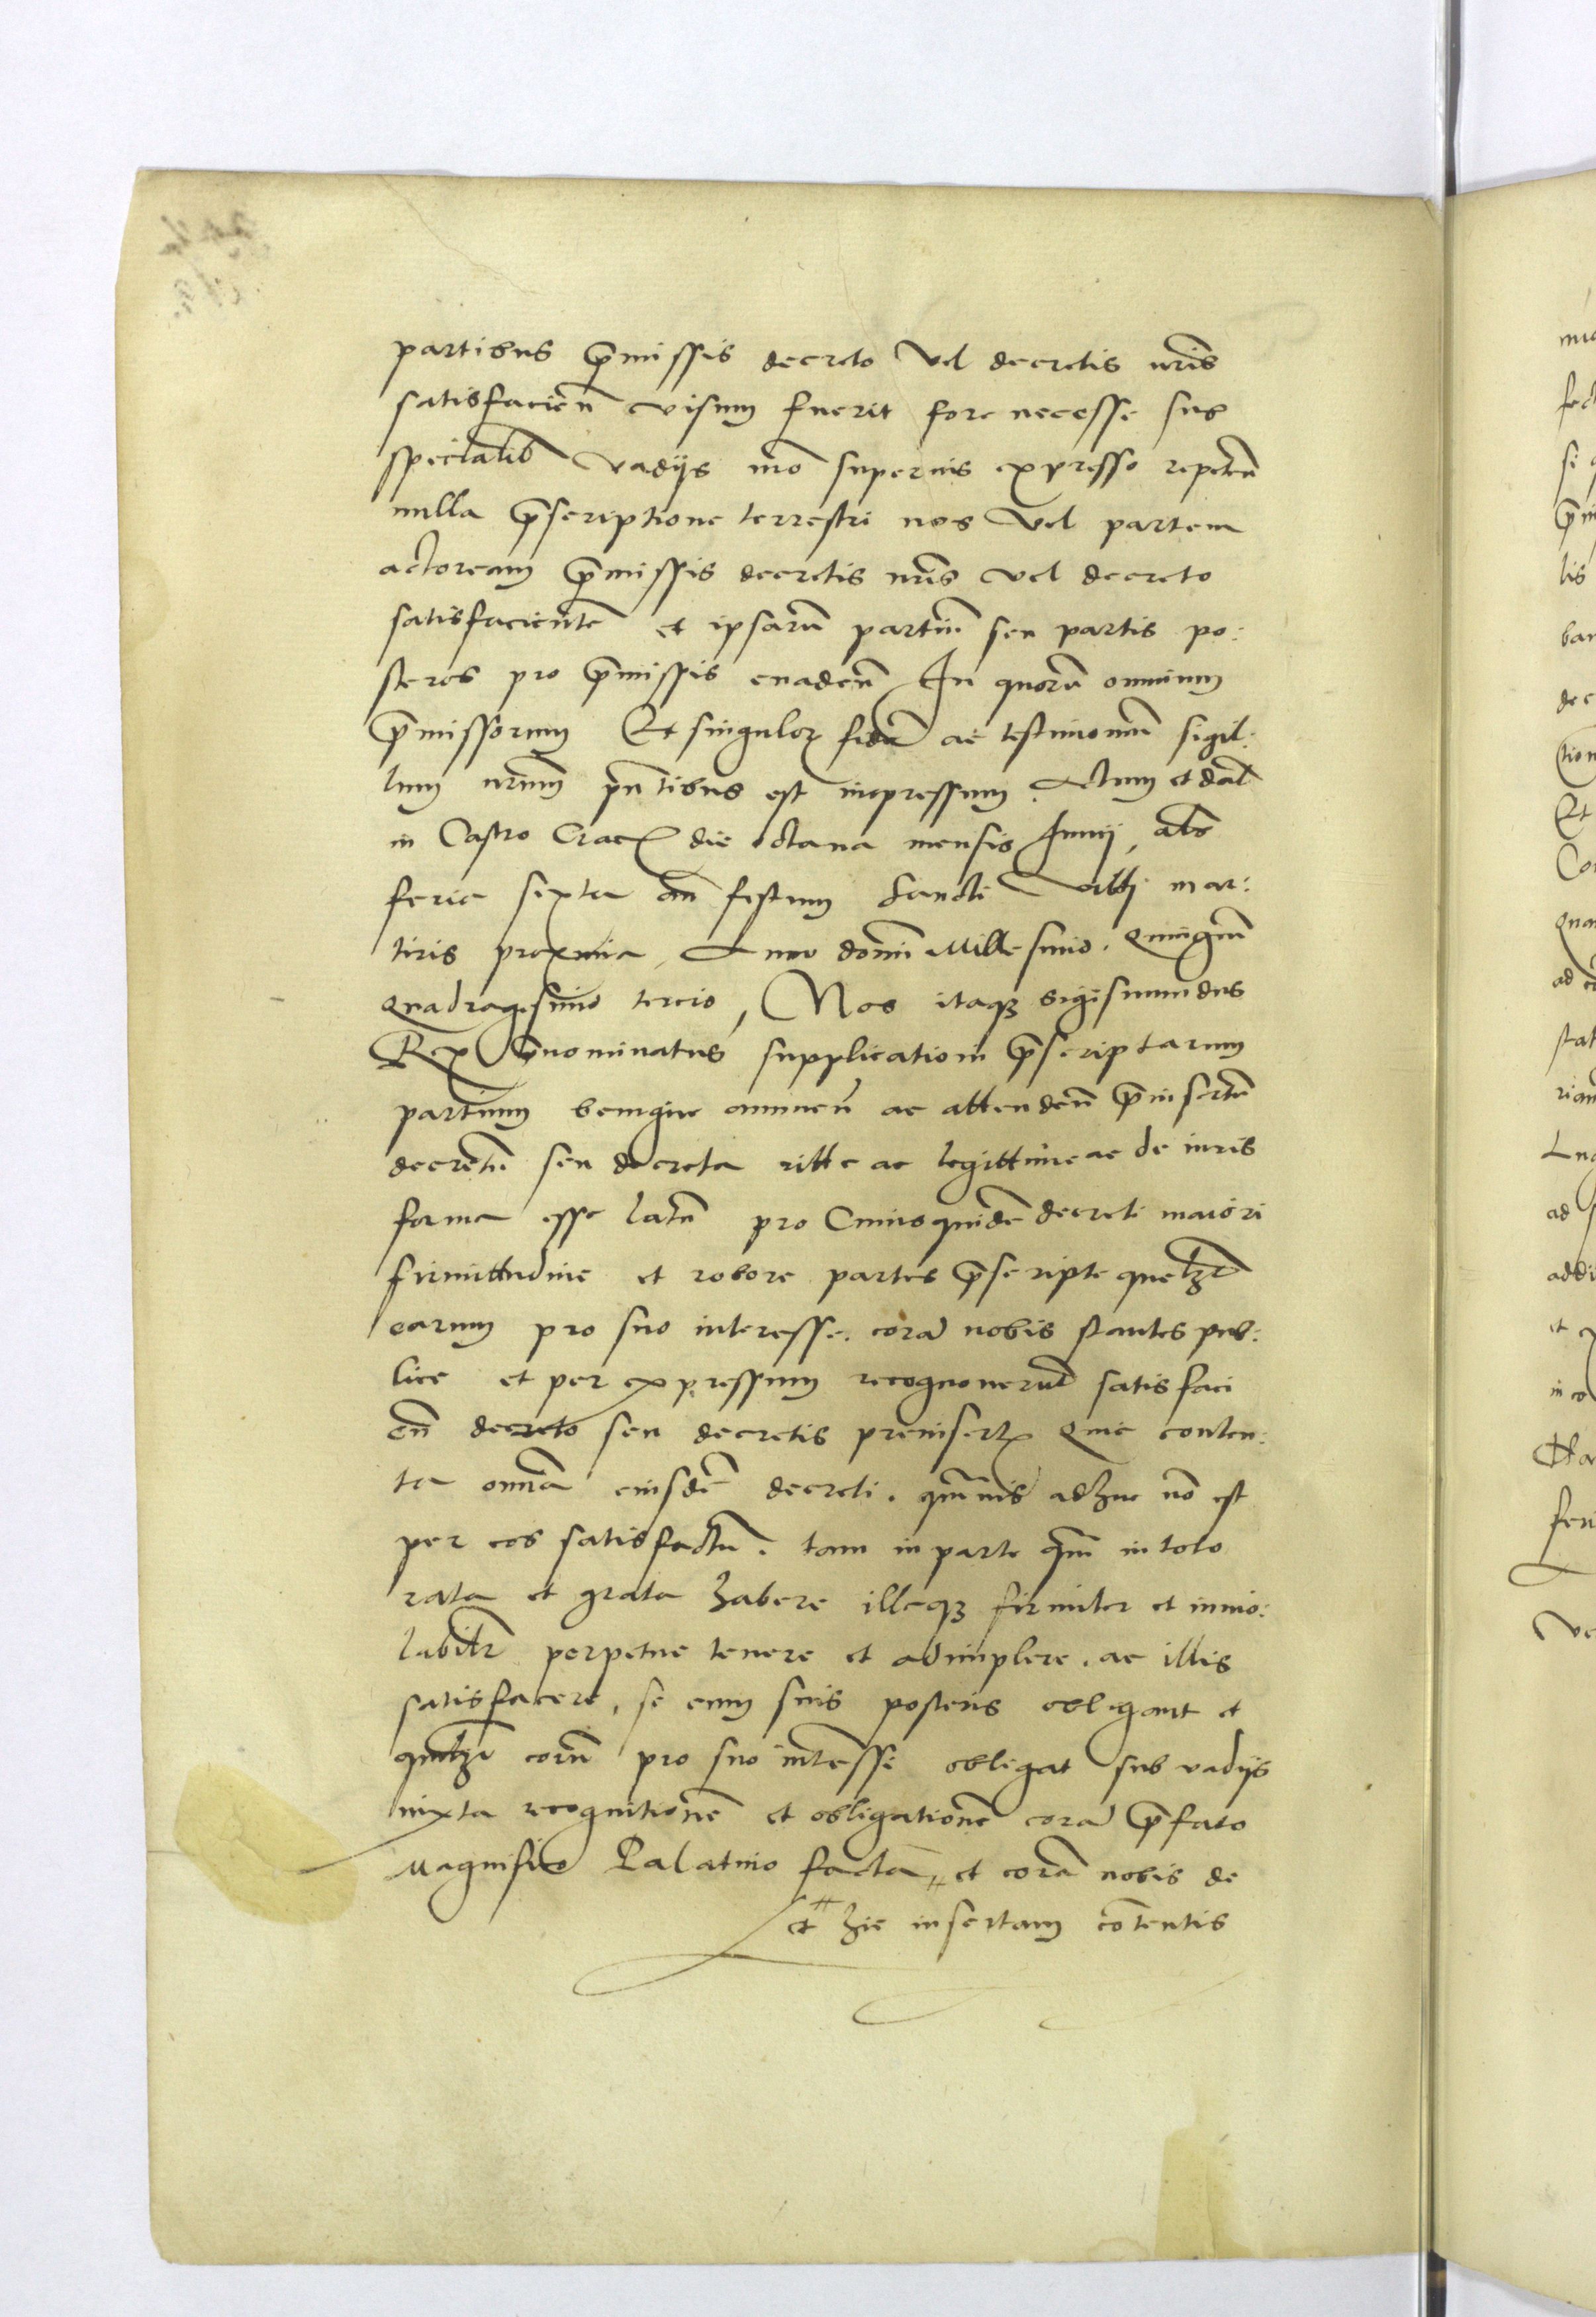 partibus p̄missis decreto vel decretis nr̄is
satisfacien̄ visum fuerit fore necesse sub
specialib vadijs mō superius expresso repeten̄
nulla p̄scriptione terrestri nos vel partem
actoream p̄missis decretis nr̄is vel decreto
satisfacientē et ipsarū partiū seu partis po:
steros pro p̄missis euaden̄ In quorū omnium
p̄missorum Et singulor̄ fidē ac testimoniū sigil:
lum nr̄um pn̄tibus est impressum. Actum et dat̄
in Castro Crac̄ die octaua mensis Junij, als
feria sexta an̄ festum Sancti Vitti mar:
tiris proxima, Anno domī Millesimo. Quingen̄
quadragesimo tercio, Nos itaq₃ Sigismundus
Rex p̄nominatus supplicationi p̄scriptarum
partium benigne annuen̄ ac attenden̄ p̄insertū
decretū seu decreta ritte ac legittime ac de iuris
forma esse latū pro Cuius quidē decreti maiori
firmittudine et robore partes p̄scripte quel₃
earum pro suo interesse. corā nobis stantes pub:
lice et per expressum recognouerūt satisfaci
en̄ decreto seu decretis preinsert̄ Quic conten:
ta omnia eiusdē decreti. qm̄uis adhuc nō est
per eos satisfactū. tam in parte qm̄ in toto
rata et grata habere illaq₃ firmiter et inuio:
labilr̄ perpetue tenere et adimplere. ac illis
satisfacere, se cum suis posteris obligant et
quil₃ eorū pro suo interesse obligat sub vadijs
iuxta recognitionē et obligationē corā p̄fato
Magnifico Palatino factā, et corā nobis de
et hic insertam cōtentis